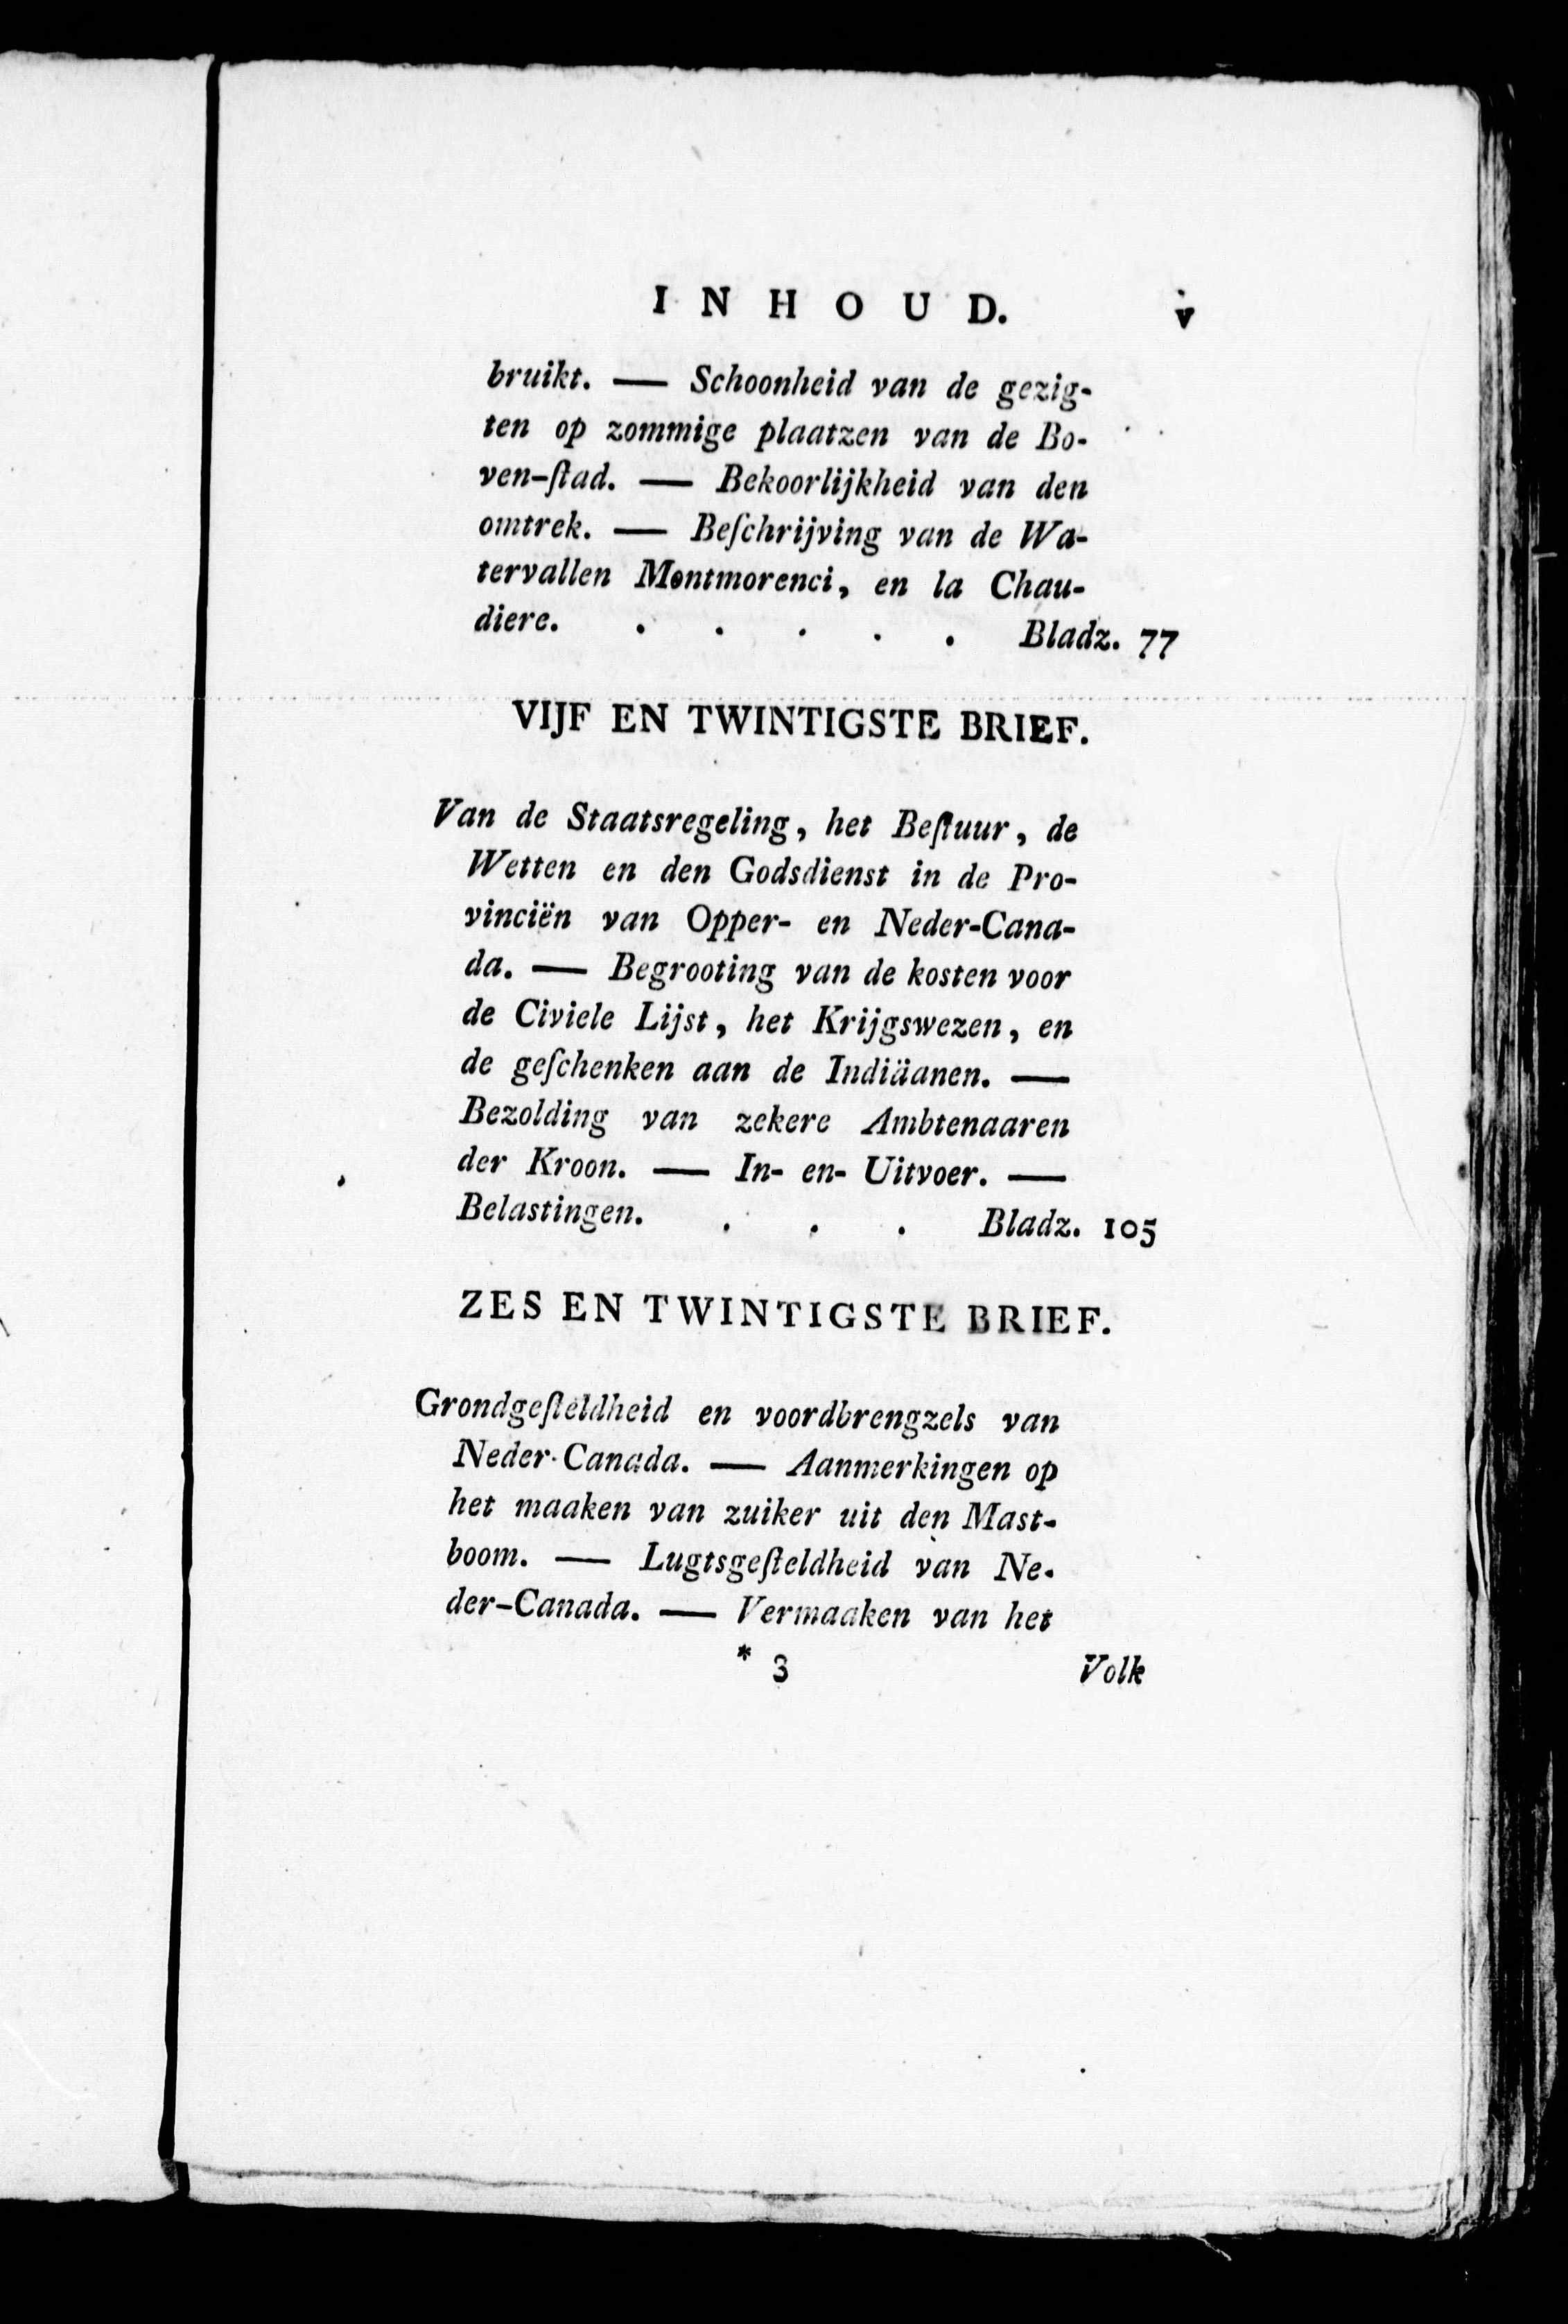 INHOUD. v
bruikt. — Schoonheid van de gezig-
ten op zommige plaatzen van de Bo-
ven-ſtad. — Bekoorlijkheid van den
omtrek. — Beſchrijving van de Wa-
tervallen Montmorenci, en la Chau-
diere. . . . . . Bladz. 77
VIJF EN TWINTIGSTE BRIEF.
Van de Staatsregeling, het Beſtuur, de
Wetten en den Godsdienst in de Pro-
vinciën van Opper- en Neder-Cana-
da. — Begrooting van de kosten voor
de Civiele Lijst, het Krijgswezen, en
de geſchenken aan de Indiäanen. —
Bezolding van zekere Ambtenaaren
der Kroon. — In- en- Uitvoer. —
Belastingen. . . . Bladz. 105
ZES EN TWINTIGSTE BRIEF.
Grondgeſteldheid en voordbrengzels van
Neder-Canada. — Aanmerkingen op
het maaken van zuiker uit den Mast-
boom. — Lugtsgeſteldheid van Ne-
der-Canada. — Vermaaken van het
* 3 Volk